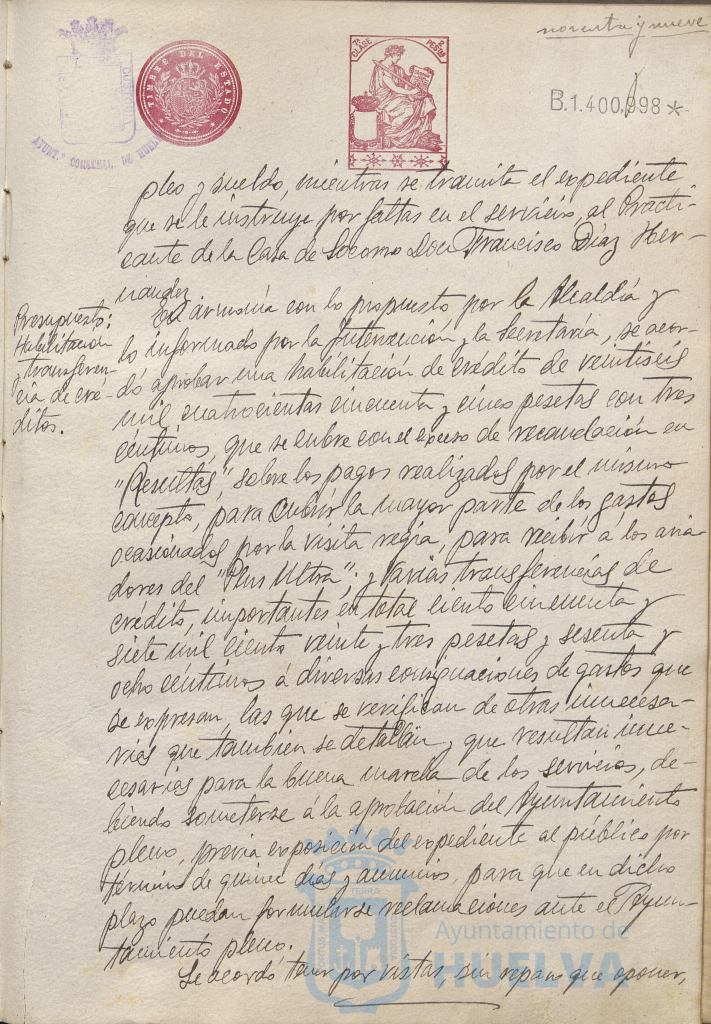 noventa y nueve
TIMBRE DEL ESTADO
7ª CLASE
2 PESTAS
B.1.400.998*
AYUNTº
DE HUEL
pleo y sueldo, mientras se tramita el expediente
que se le instruye por faltas en el servicio, al Practi-
cante de la Casa de Socorro Don Francisco Díaz Her-
nandez.
Presupuesto:
Habilitación
y transferen-
cia de cré-
ditos.
En armonía con lo propuesto por la Alcaldía y
lo informado por la Intervención y la Secretaría, se acor-
dó aprobar una habilitación de crédito de veintiseis
mil cuatrocientas cincuenta y cinco pesetas con tres
céntimos, que se cubre con el exceso de recaudación en
"Resultas", sobre los pagos realizados por el mismo
concepto, para cubrir la mayor parte de los gastos
ocasionados por la visita regia, para recibir a los avia-
dores del "Plus Ultra"; y varias transferencias de
crédito, importantes en total ciento cincuenta y
siete mil ciento veinte y tres pesetas y sesenta y
ocho céntimos á diversas consignaciones de gastos que
se expresan, las que se verifican de otras innecesa-
rias que también se detallan y que resultan inne-
cesarias para la buena marcha de los servicios, de-
biendo someterse á la aprobación del Ayuntamiento
pleno, previa exposición del expediente al público por
término de quince días y anuncios, para que en dicho
plazo puedan formularse reclamaciones ante el Ayun-
tamiento pleno.
Se acordó tener por vistas, sin reparo que oponer,
Ayuntamiento de
HUELVA